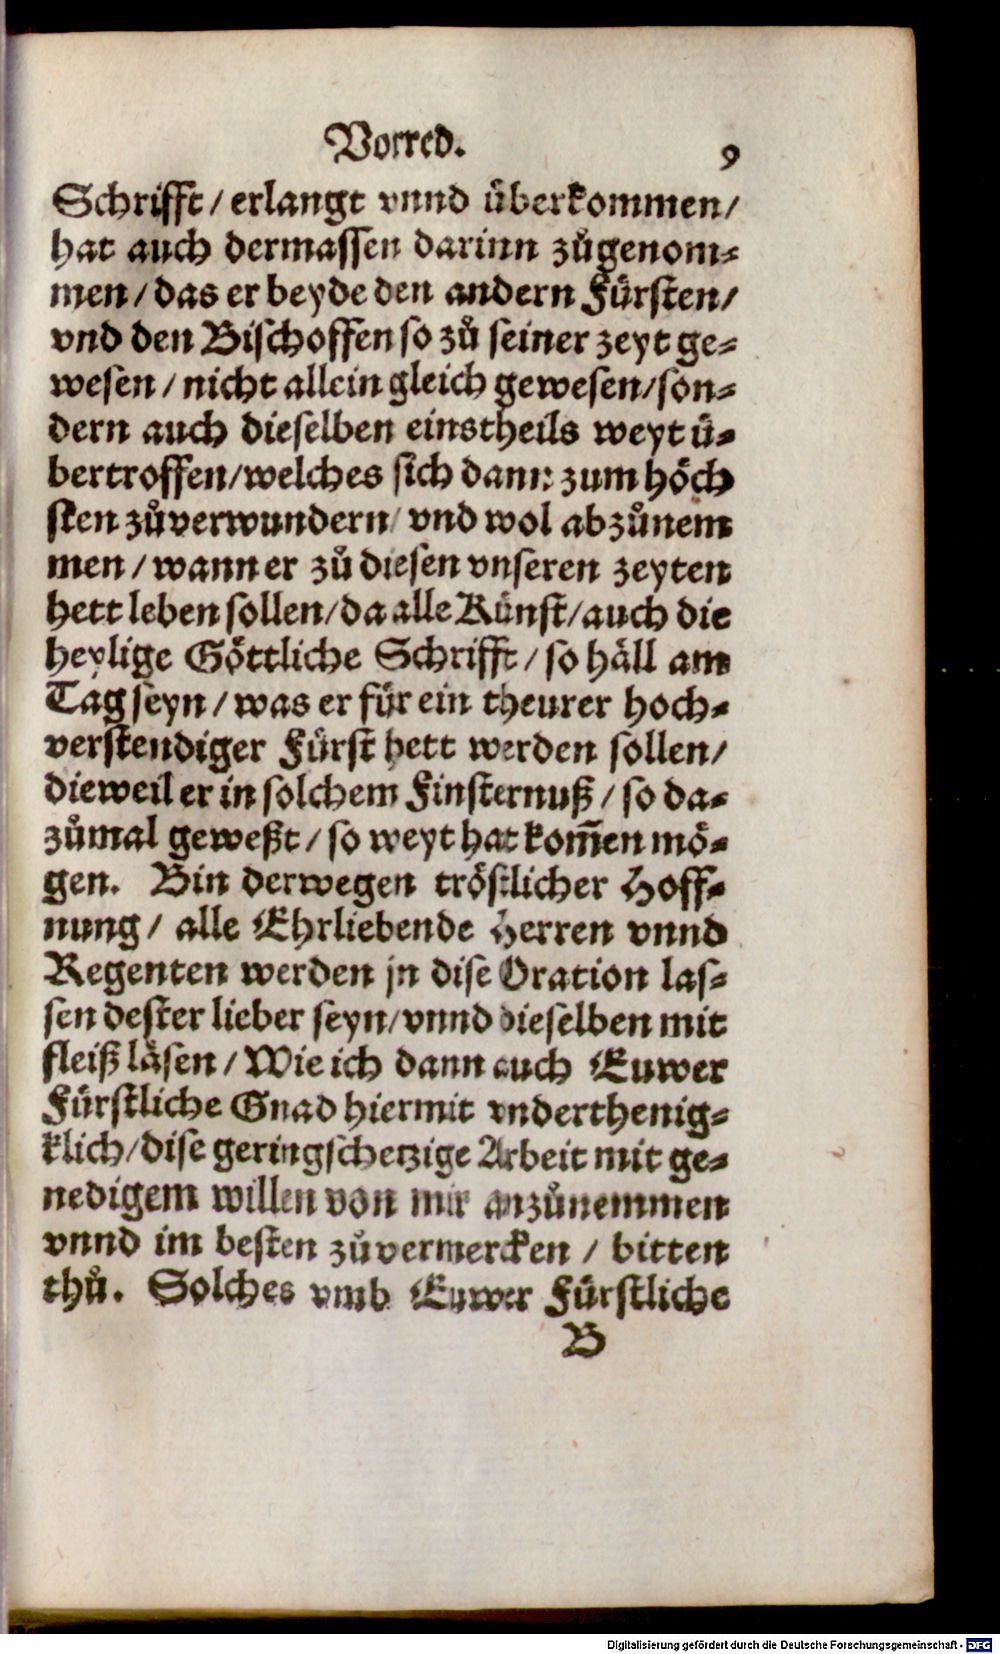 Vorred. 9
Schrifft / erlangt vnnd überkommen /
hat auch dermassen darinn zůgenom⸗
men / das er beyde den andern Fürsten /
vnd den Bischoffen so zů seiner zeyt ge⸗
wesen / nicht allein gleich gewesen / son⸗
dern auch dieselben einstheils weyt ü⸗
bertroffen / welches sich dann zum höch
sten zůverwundern / vnd wol abzůnem
men / wann er zů diesen vnseren zeyten
hett leben sollen / da alle Künst / auch die
heylige Göttliche Schrifft / so häll am
Tag seyn / was er für ein theurer hoch⸗
verstendiger Fürst hett werden sollen /
dieweil er in solchem Finsternuß / so da⸗
zůmal geweßt / so weyt hat kom̃en mö⸗
gen. Bin derwegen tröstlicher Hoff⸗
nung / alle Ehrliebende Herren vnnd
Regenten werden jn dise Oration las⸗
sen dester lieber seyn / vnnd dieselben mit
fleiß läsen / Wie ich dann auch Euwer
Fürstliche Gnad hiermit vnderthenig⸗
klich / dise geringschetzige Arbeit mit ge⸗
nedigem willen von mir anzůnemmen
vnnd im besten zůvermercken / bitten
thů. Solches vmb Euwer Fürstliche
B
Digitalisierung gefördert durch die Deutsche Forschungsgemeinschaft - DFG